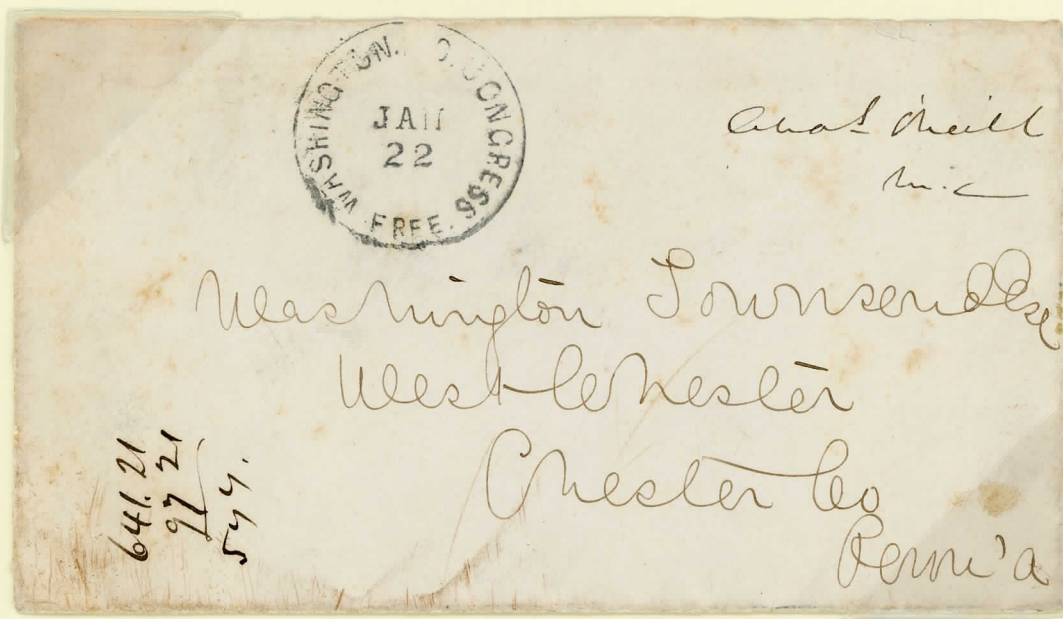 WASHINGTON. D.C. CONGRESS
JAN
22
FREE.
Chas O'Neill
M.C
Washington Townsend Esq
West Chester
Chester Co
Penn'a
641.21
97 21
544.